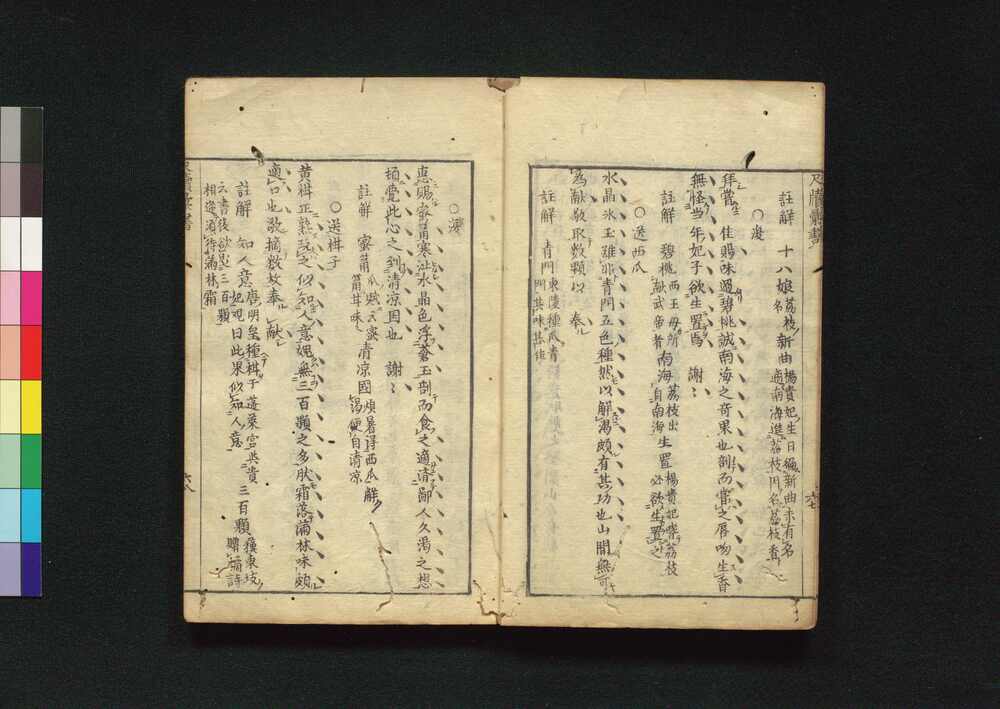 註解 十八娘 荔枝名 新曲 楊貴妃生日編新曲未有名
適南海進荔枝因名荔枝香
○復
拜嘗佳賜味過碧桃誠南海之奇果也剖而嘗之唇吻生香
無怪当年妃子欲生置焉 謝〻
註解 碧桃 西王母所献武帝者 南海 荔枝出自南海 生置 楊貴妃嗜荔枝必欲生置之
○送西瓜
水晶氷玉雖非青門五色種然以解渴頗有其功也山間無可
為献敬取数顆以 奉
註解 青門 東陵種瓜青門其味甚佳
六七
○復
惠賜蜜筩寒泚水晶色浮蒼玉剖而食之適清鄙人久渴之想
頓覺此心之到清凉国也 謝〻
註解 蜜筩 瓜賦云蜜筩甘味 清凉國 煩暑得西瓜解渴便自清凉
○送柑子
黄柑正熟玩之似知人意媿無三百顆之多肰霜落滿林味頗
適口也敬摘数枚奉 献
註解 知人意 唐明皇種柑于蓬萊宮與貴妃玩曰此果似知人意 三百顆
云書後欲 三百顆
相逢須待滿林霜
六八